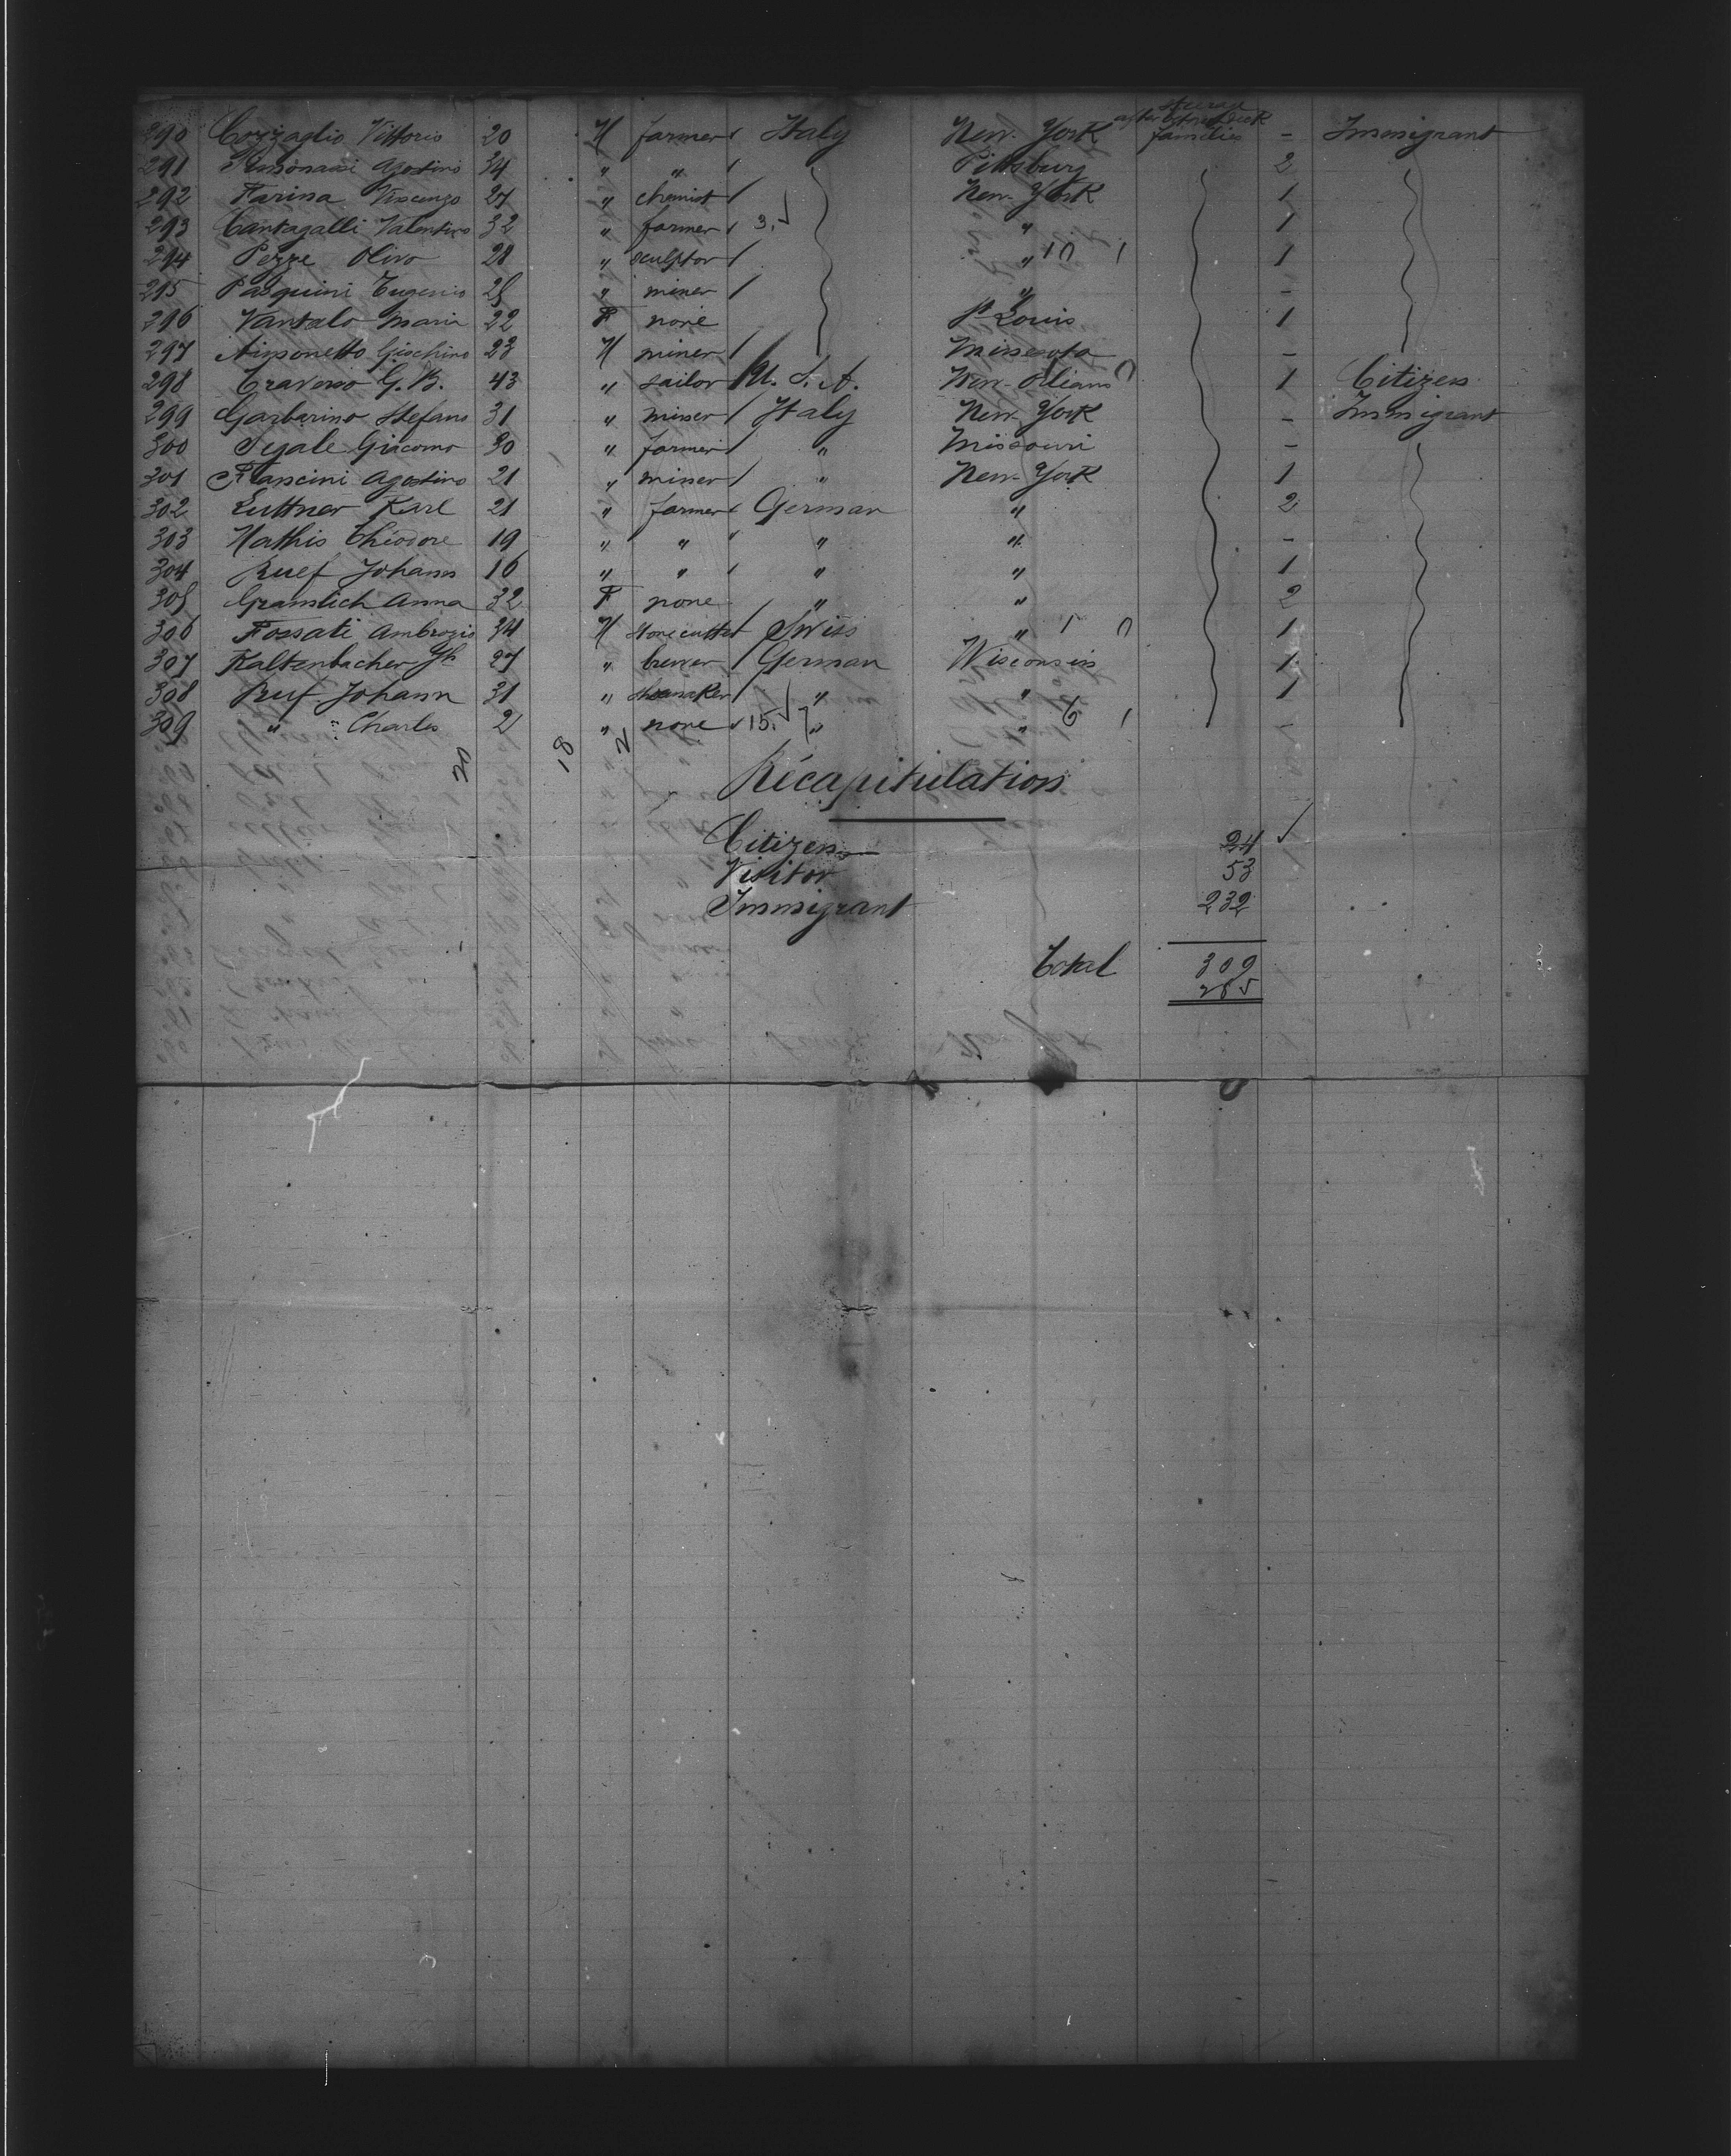 steerage
after
290 Cozzaglio Vittorio 20 H farmer Italy New-York families - Immigrant
291 Agostino 34 " " Pittsburg 2
292 Farina Vincenzo 27 " chemist New-York 1
293 Cantagalli Valentino 32 " farmer 3. " 1
294 Pezze Olivo 28 " sculptor " 1
295 Pasquini Eugenio " miner " -
296 Vantalo Maria 22 F none St Louis 1
297 23 H miner Minnesota -
298 Traverso G. B. 43 " sailor U. S. A. New-Orleans 1 Citizen
299 Garbarino Stefano 31 " miner Italy New-York - Immigrant
300 Segale Giacomo 30 " farmer " Missouri -
301 Agostino 21 " miner " New-York 1
302 Luttner Karl 21 " farmer German " 2
303 Hathis Théodore 19 " " " " -
304 Ruef Johann 16 " " " " 1
305 Gramlich Anna 32 F none " " 2
306 Fossati Ambrogio 34 H stonecutter Swiss " 1
307 Kaltenbacher 27 " brewer German Wisconsin 1
308 Ruf Johann 31 " shoemaker " " 1
309 " Charles 2 " none 15. " " 6 1 -
20 18 2
Récapitulation
Citizen 24
Visitor 53
Immigrant 232
Total 309
285